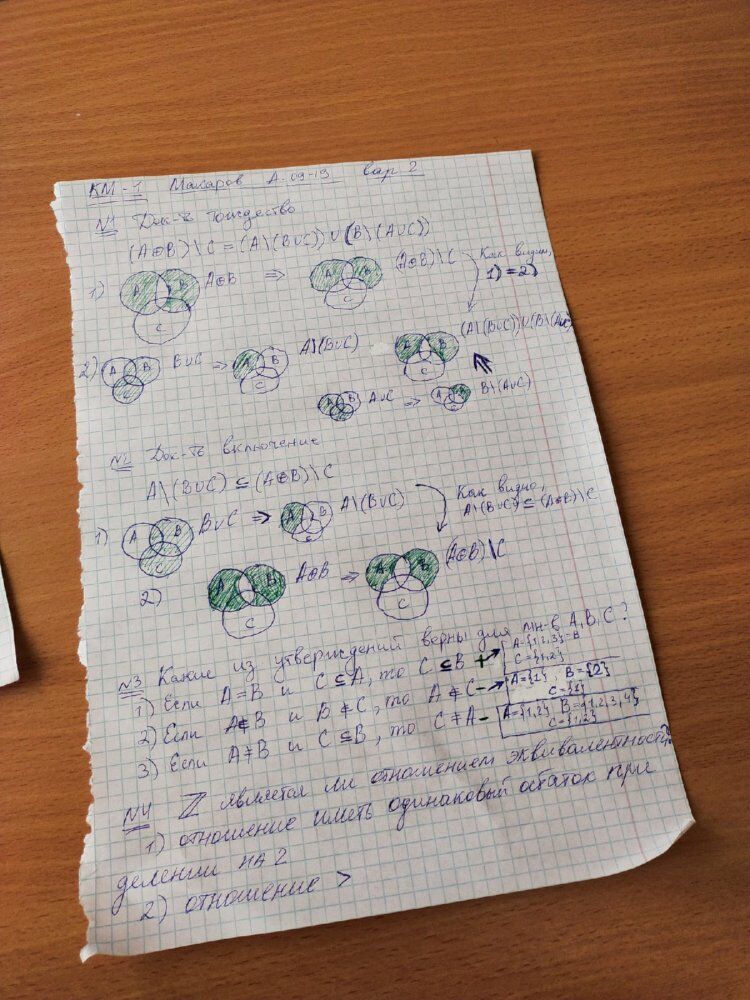 КМ-1 Макаров А-09-19 вар 2
№1 Док-ть тождество
(A⊕B)\C = (A\(B∪C))∪(B\(A∪C))
1) A B C A⊕B ⇒ A B C (A⊕B)\C Как видим, 1)=2)
2) A B C B∪C ⇒ A B C A\(B∪C) A B C (A\(B∪C))∪(B\(A∪C))
A B C A∪C ⇒ A B C B\(A∪C)
№2 Док-ть включение
A\(B∪C) ⊆ (A⊕B)\C
1) A B C B∪C ⇒ A B C A\(B∪C) Как видно, A\(B∪C)⊆(A⊕B)\C
2) A B C A⊕B ⇒ A B C (A⊕B)\C
№3 Какие из утверждений верны для мн-в A, B, C?
1) Если A=B и C⊆A, то C⊆B + → A={1,2,3}=B C={1,2}
2) Если A≠B и B≠C, то A≠C - → A={1}, B={2} C={1}
3) Если A≠B и C⊆B, то C≠A - A={1,2} B={1,2,3,4} C={1,2}
№4 ℤ является ли отношением эквивалентности
1) отношение иметь одинаковый остаток при
делении на 2
2) отношение >